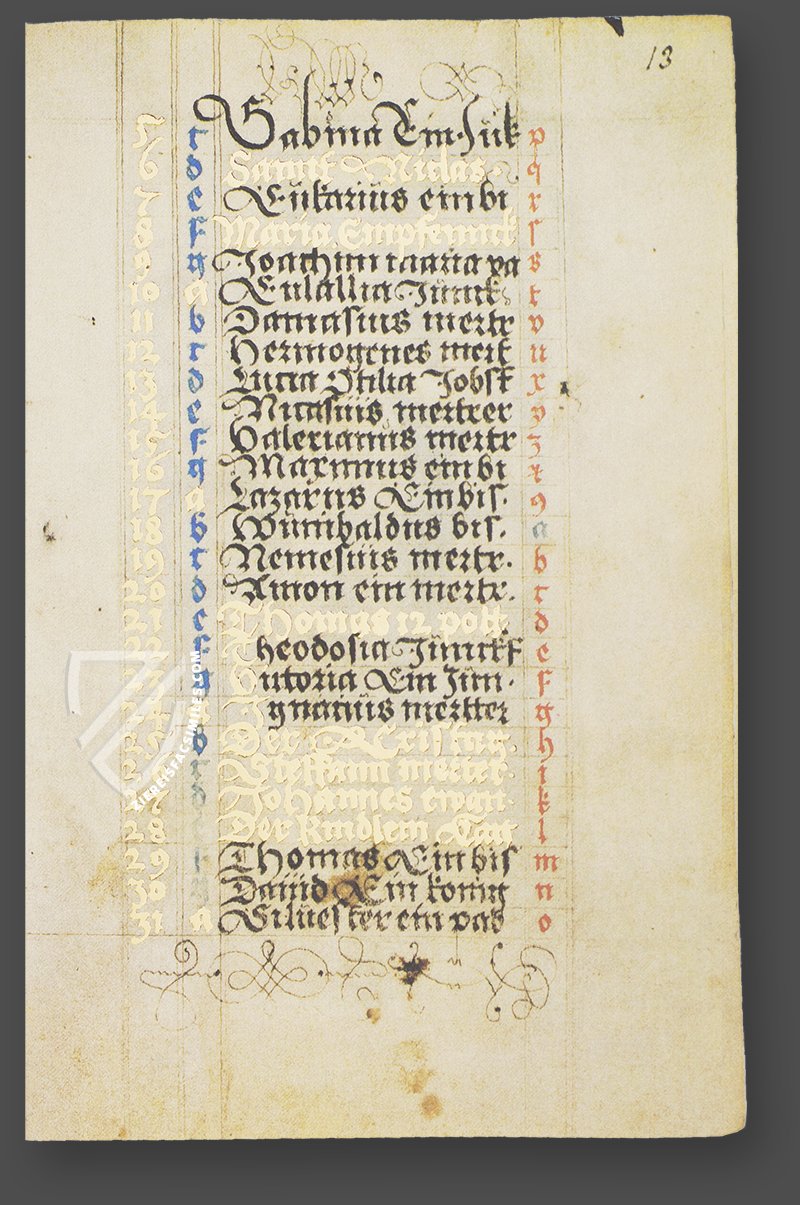 13
5 c Sabina Ein Juk p
6 d Sannt Niclas q
7 e Eukarius ein bi r
8 f Maria Empfenck ſ
9 g Joachim s
10 a Eulallia Junck t
11 b Damasius mertr v
12 c Hermogenes mert u
13 d Lucia Otilia Jobst x
14 e Nicasius mertrer y
15 f Valerianus mertr z
16 g Maximus ein bi
17 a Lazarus Ein bis. 9
18 b Wunibaldus bis. a
19 c Nemesius mertr. b
20 d Amon ein mertr. c
21 e Thomas 12 pott d
22 f Theodosia Junckf e
g Ein Jun. f
gnatius mertter g
b Der Cristag h
c Steffann merter i
d Johannes ewen. k
28 Der Kindlein Tag l
29 Thomas Ein bis m
30 Dauid Ein konig n
31 a Siluester ein pab o
ZIEREISFACSIMILES.COM